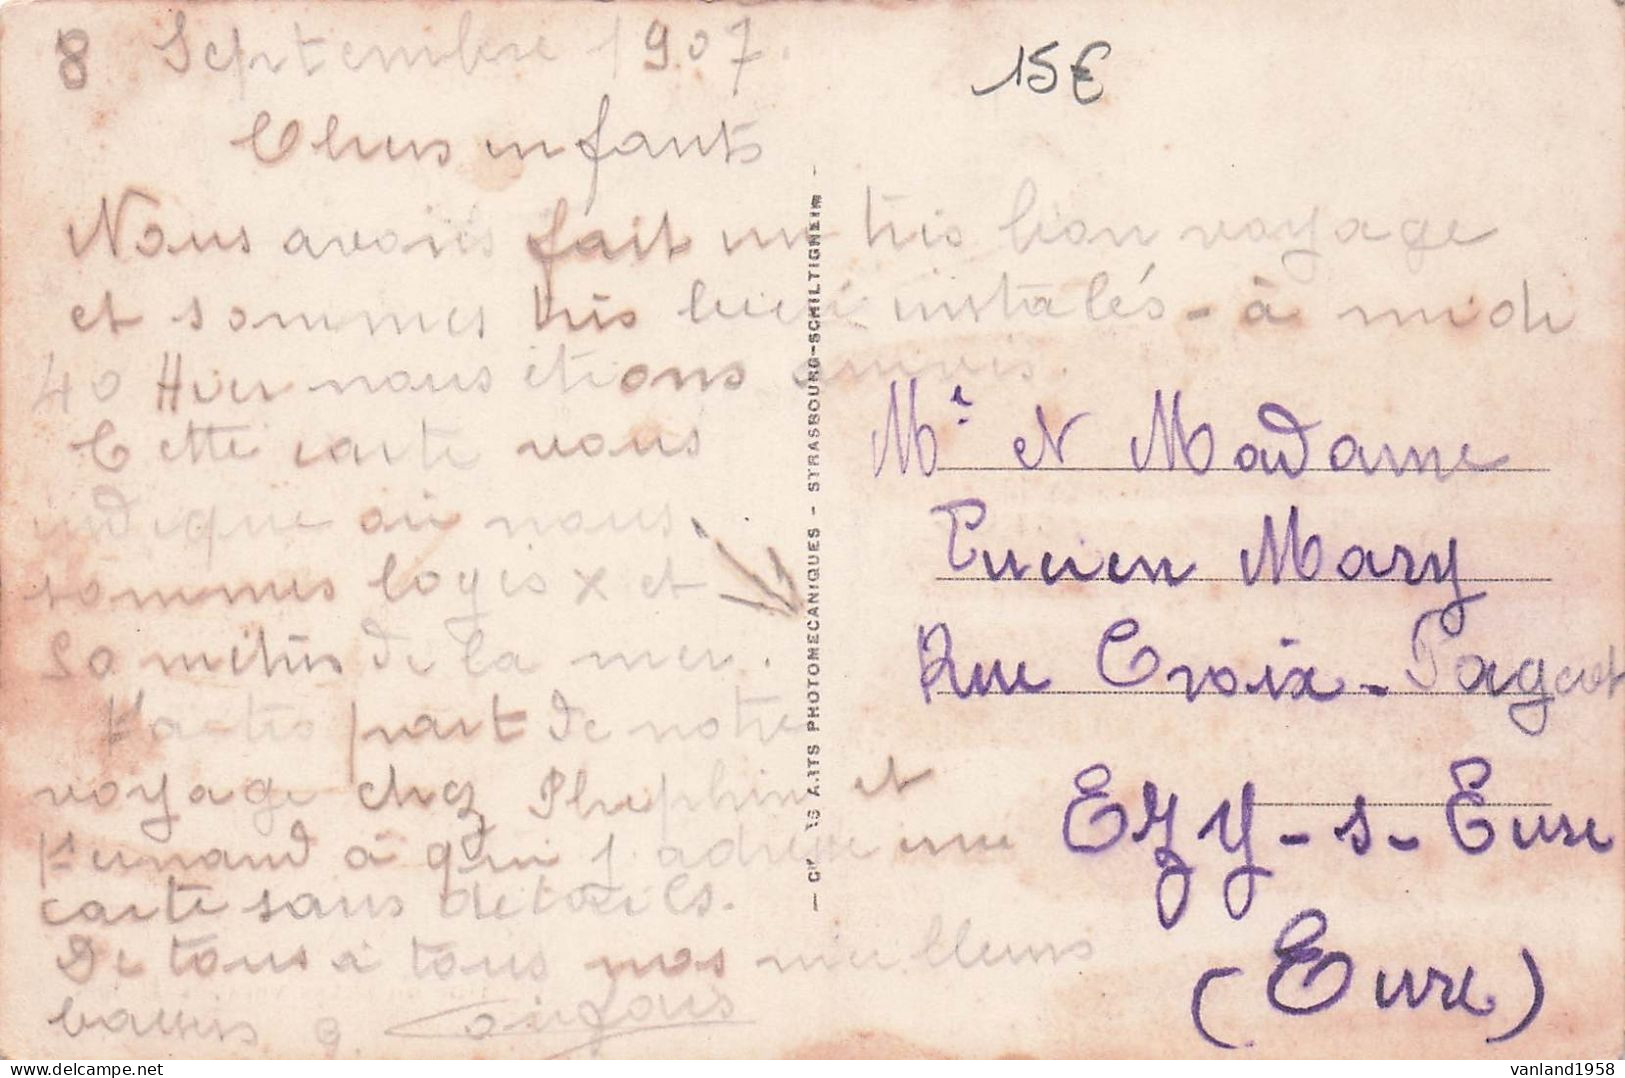 8 Septembre 1907.
15€
Chers enfants
Nous avons fait un très bon voyage
et sommes très bien instalés - à midi
40 Hier nous étions arrivés.
Cette carte vous
indique où nous
sommes logés x et
50 mètres de la mer.
part de notre
voyage chez et
à qui j'adresse une
carte sans détails.
De tous à tous nos meilleurs
baisers
Mr et Madame
Lucien Mary
Rue Croix-Pageot
Ezy-s-Eure
(Eure)
ARTS PHOTOMECANIQUES - STRASBOURG-SCHILTIGHEIM -
vanland1958